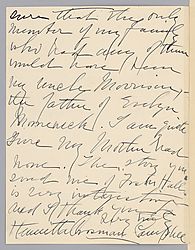 sure that the only
member of my family
who had any of them
would have been
my uncle Morrison,
the father of Evelyn
I am quite
sure my Mother had
none. The story you
send me of Foster Hall
is very interesting
and I thank you